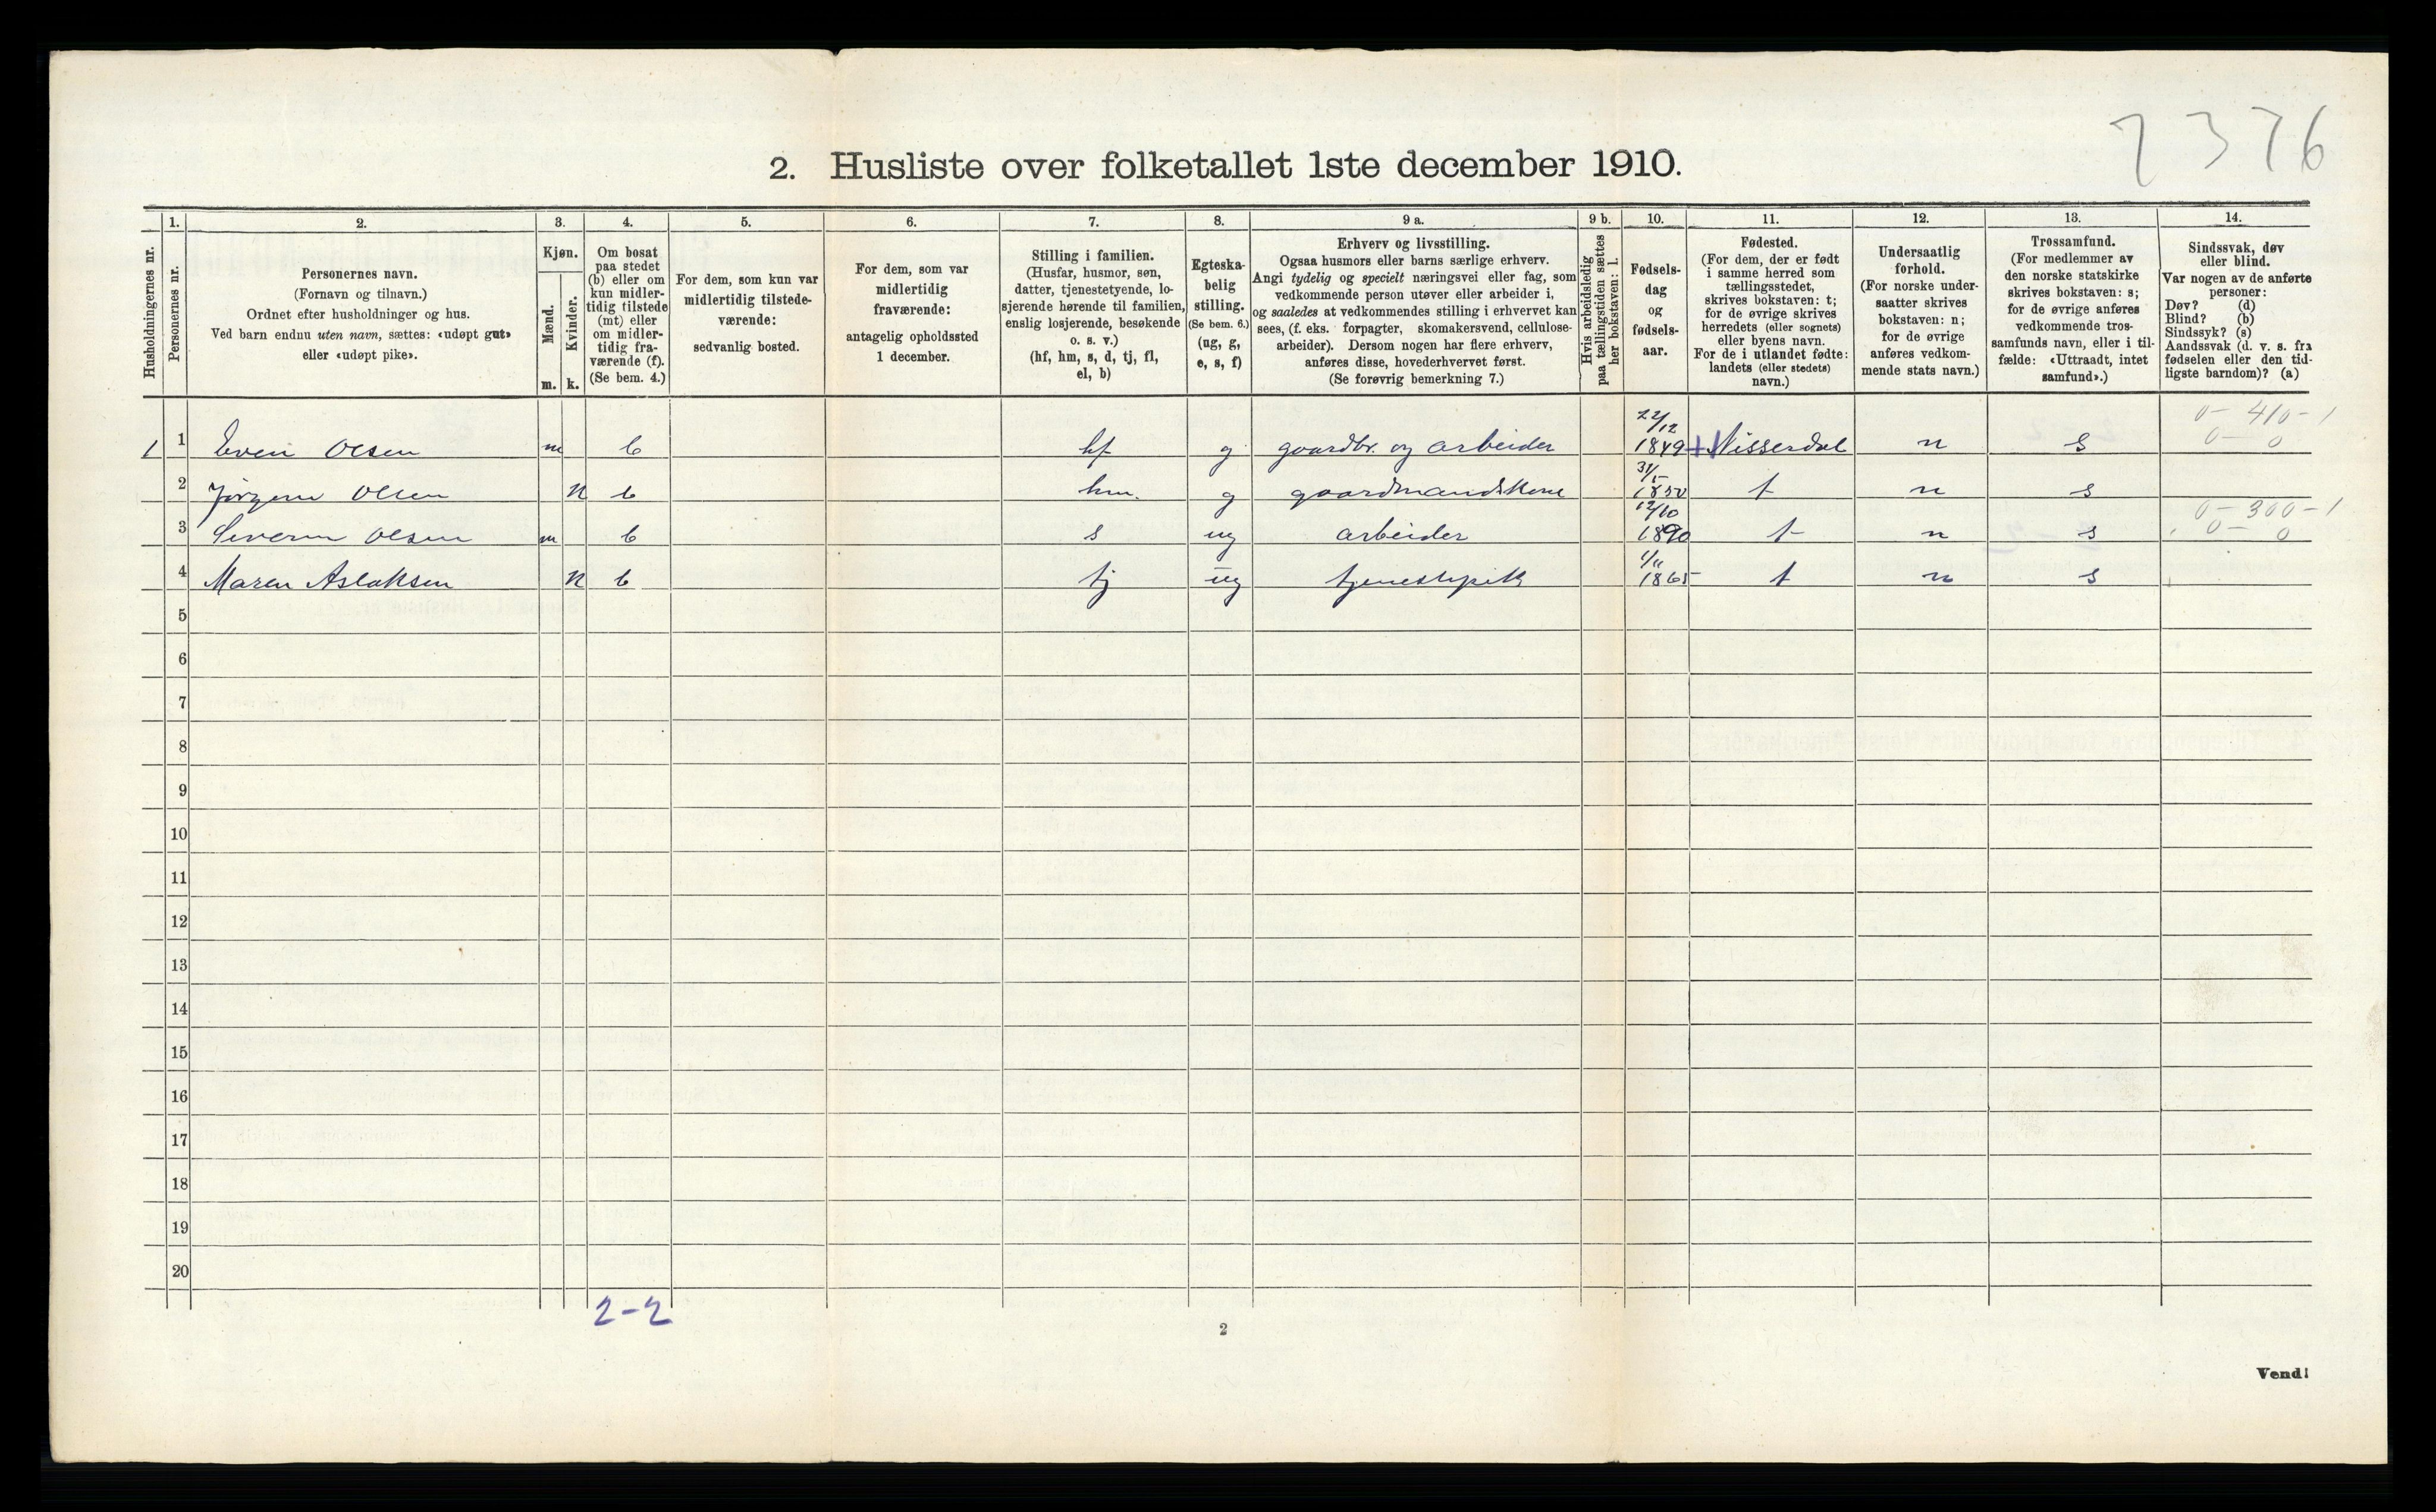 7376
2. Husliste over folketallet 1ste december 1910.
Husholdningernes nr.
1.
Personernes nr.
2.
Personernes navn.
(Fornavn og tilnavn.)
Ordnet efter husholdninger og hus.
Ved barn endnu uten navn, sættes: «udøpt gut»
eller «udøpt pike».
3.
Kjøn.
Mænd.
m.
Kvinder.
k.
4.
Om bosat
paa stedet
(b) eller om
kun midler-
tidig tilstede
(mt) eller
om midler-
tidig fra-
værende (f).
(Se bem. 4.)
5.
For dem, som kun var
midlertidig tilstede-
værende:
sedvanlig bosted.
6.
For dem, som var
midlertidig
fraværende:
antagelig opholdssted
1 december.
7.
Stilling i familien.
(Husfar, husmor, søn,
datter, tjenestetyende, lo-
sjerende hørende til familien,
enslig losjerende, besøkende
o. s. v.)
(hf, hm, s, d, tj, fl,
el, b)
8.
Egteska-
belig
stilling.
(Se bem. 6.)
(ug, g,
e, s, f)
9 a.
Erhverv og livsstilling.
Ogsaa husmors eller barns særlige erhverv.
Angi tydelig og specielt næringsvei eller fag, som
vedkommende person utøver eller arbeider i,
og saaledes at vedkommendes stilling i erhvervet kan
sees, (f. eks. forpagter, skomakersvend, cellulose-
arbeider). Dersom nogen har flere erhverv,
anføres disse, hovederhvervet først.
(Se forøvrig bemerkning 7.)
9 b.
Hvis arbeidsledig
paa tællingstiden sættes
her bokstaven: l.
10.
Fødsels-
dag
og
fødsels-
aar.
11.
Fødested.
(For dem, der er født
i samme herred som
tællingsstedet,
skrives bokstaven: t;
for de øvrige skrives
herredets (eller sognets)
eller byens navn.
For de i utlandet fødte:
landets (eller stedets)
navn.)
12.
Undersaatlig
forhold.
(For norske under-
saatter skrives
bokstaven: n;
for de øvrige
anføres vedkom-
mende stats navn.)
13.
Trossamfund.
(For medlemmer av
den norske statskirke
skrives bokstaven: s;
for de øvrige anføres
vedkommende tros-
samfunds navn, eller i til-
fælde: «Uttraadt, intet
samfund».)
14.
Sindssvak, døv
eller blind.
Var nogen av de anførte
personer:
Døv? (d)
Blind? (b)
Sindssyk? (s)
Aandssvak (d. v. s. fra
fødselen eller den tid-
ligste barndom)? (a)
1 1 Even Olsen m b hf g gaardbr. og arbeider 1849 Nisserdal n s 0 - 410 - 1 0 - 0
2 Jørgine Olsen k b hm. g gaardmandskone 31/5 1850 t n s
3 Severin Olsen m b s ug arbeider 12/10 1890 t n s 0 - 300 - 1 0 - 0
4 Maren Aslaksen k b tj ug tjenestepike 1/11 1865 t n s
5
6
7
8
9
10
11
12
13
14
15
16
17
18
19
20
2-2
2
Vend!